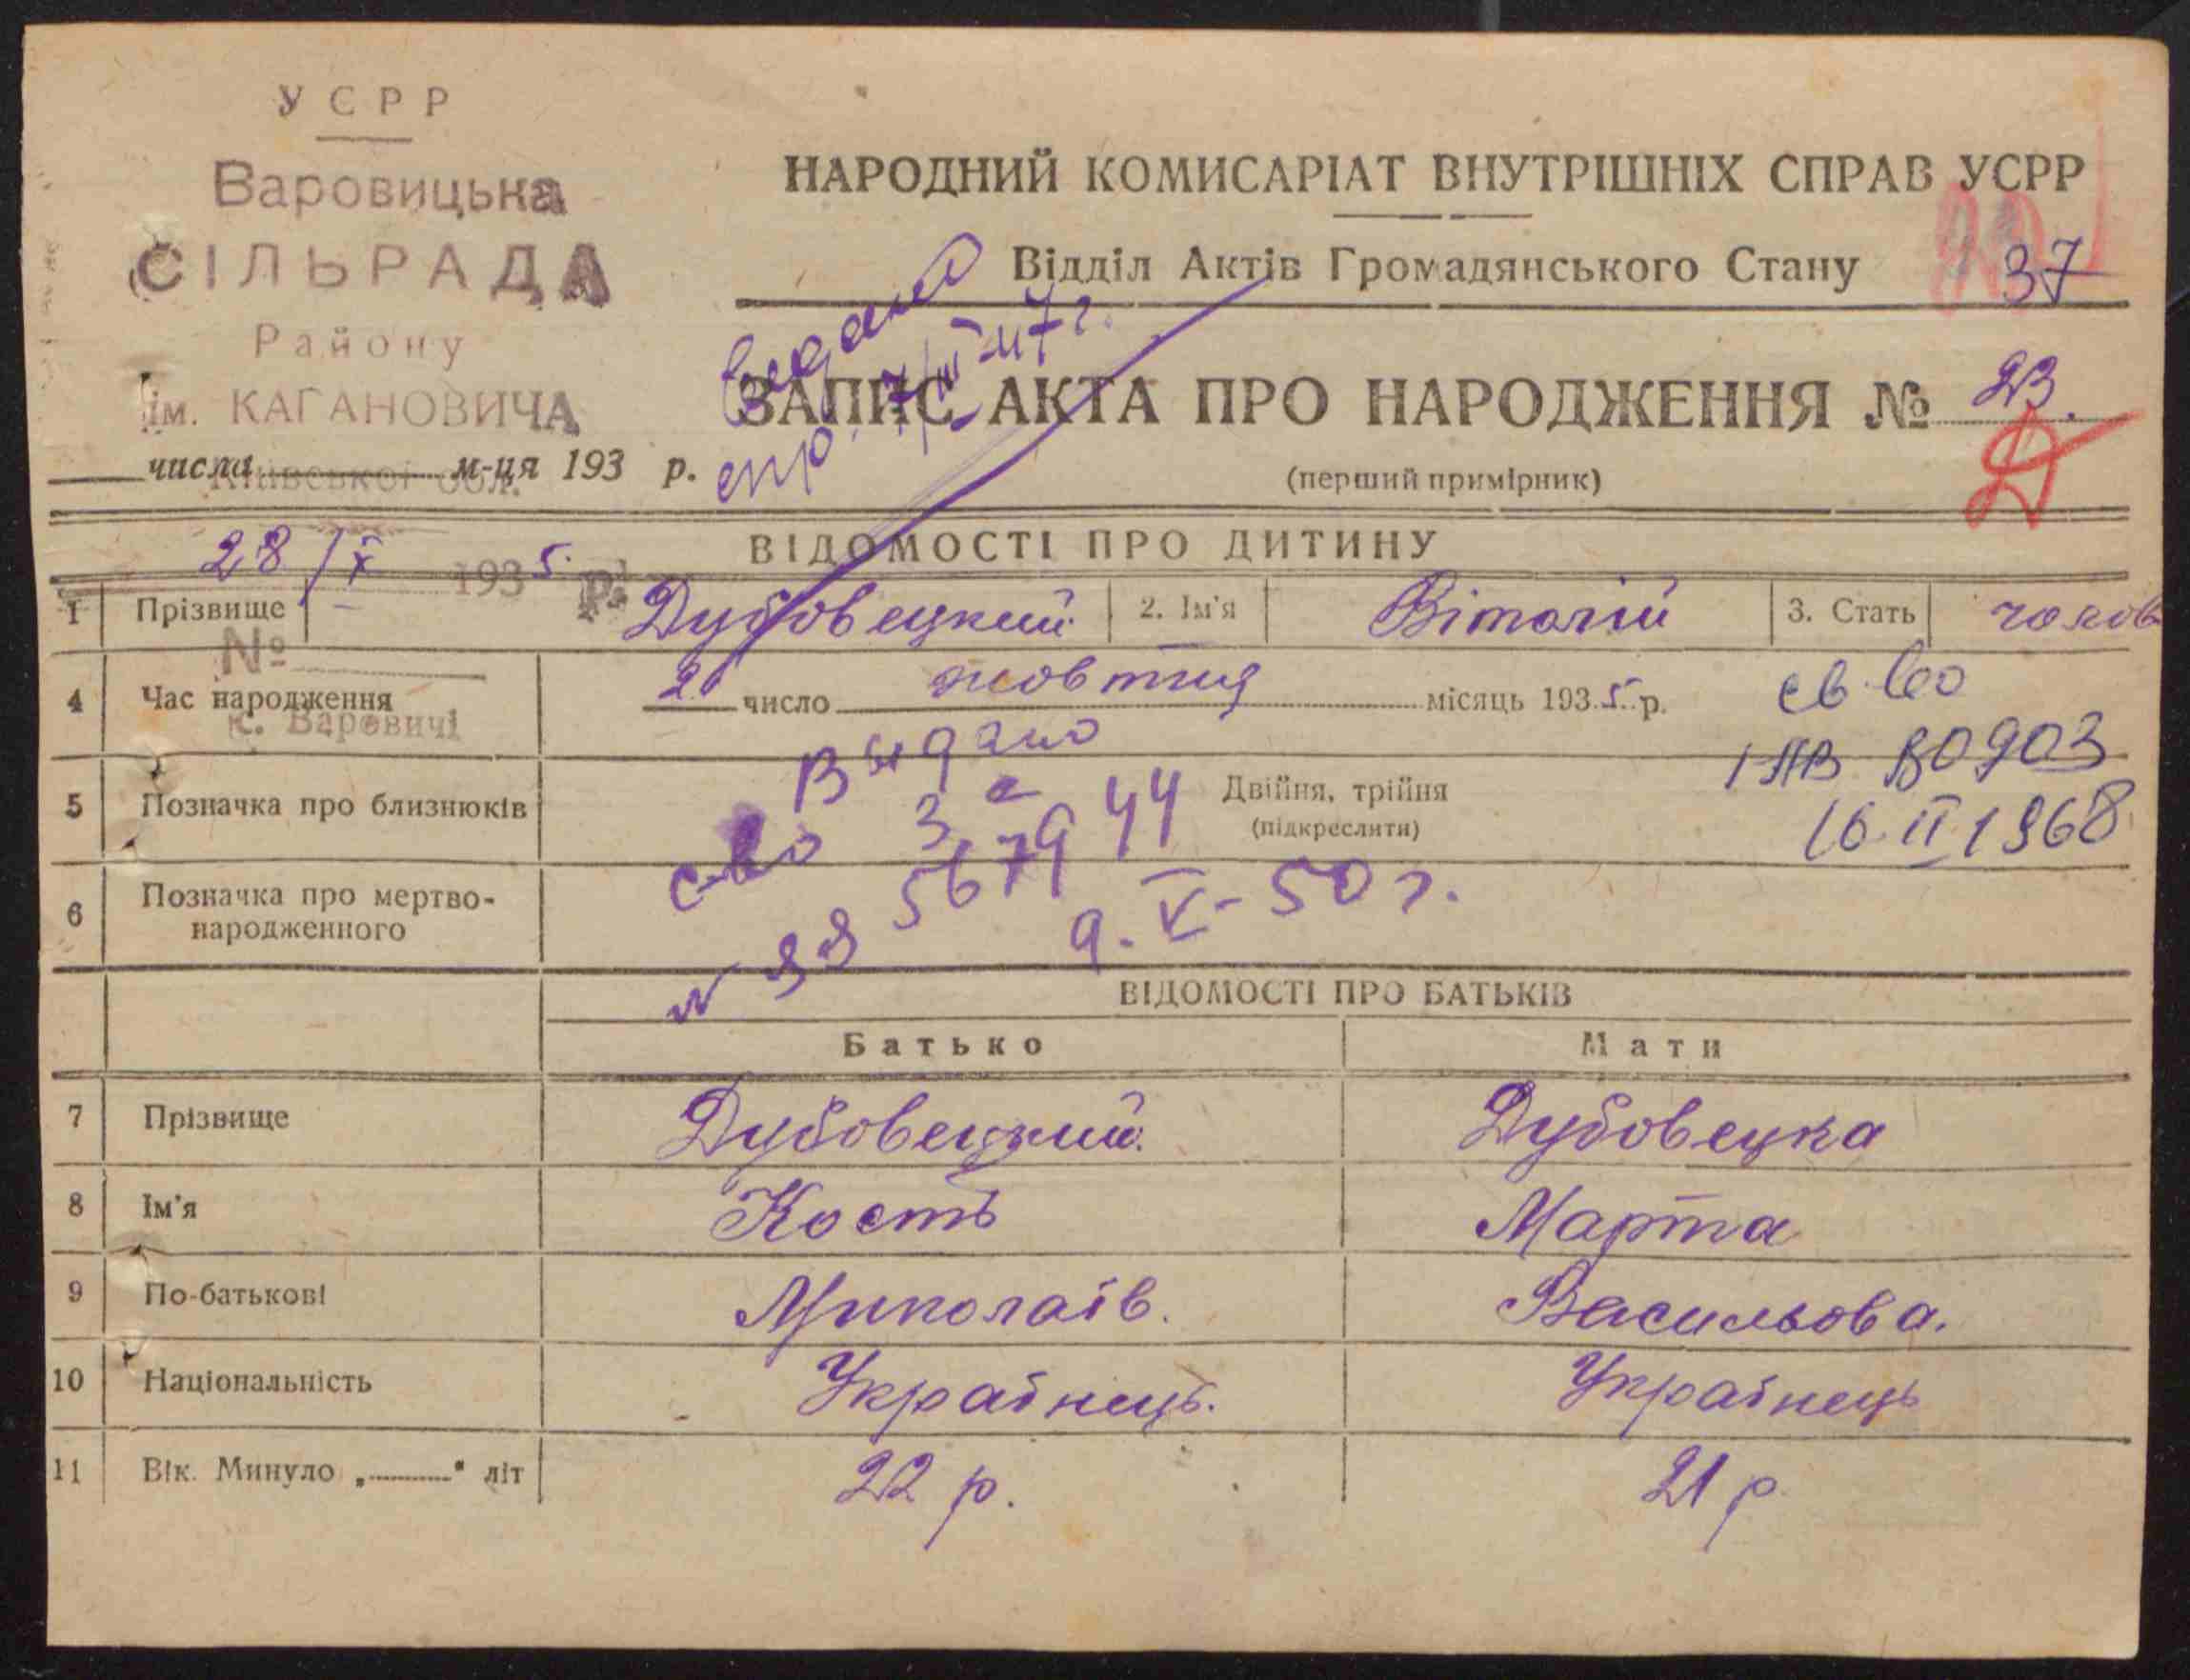 УСРР
Варовицька
СІЛЬРАДА
Району
ім. КАГАНОВИЧА
Київської обл.
числа м-ця 193 р.
28/X 1935. р.
№
с. Варовичі
НАРОДНИЙ КОМИСАРІАТ ВНУТРІШНІХ СПРАВ УСРР
Відділ Актів Громадянського Стану
37
видано
спр. 7/III-47 г.
ЗАПИС АКТА ПРО НАРОДЖЕННЯ № 23.
(перший примірник)
ВІДОМОСТІ ПРО ДИТИНУ
1 Прізвище Дубовецкий 2. Ім'я Віталій 3. Стать чолов
4 Час народження 20 число жовтня місяць 1935 р.
св-во
80903
16.II 1968
5 Позначка про близнюків Двійня, трійня
(підкреслити)
Выдано
с-во
9.V-50 г.
6 Позначка про мертво-
народженного
ВІДОМОСТІ ПРО БАТЬКІВ
Батько Мати
7 Прізвище Дубовецький. Дубовецка
8 Ім'я Кость Марта
9 По-батькові Миколаїв. Васильова.
10 Національність Українець. Українець
11 Вік. Минуло „———" літ 22 р. 21 р